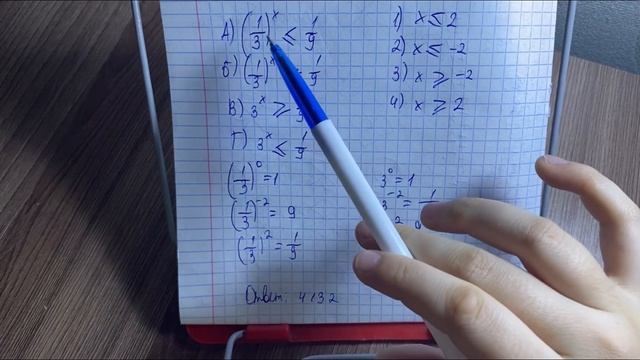 А) (1/3)^x ≤ 1/9
Б) (1/3)^x 1/9
В) 3^x ≥
Г) 3^x ≤ 1/9
(1/3)^0 = 1
(1/3)^-2 = 9
(1/3)^2 = 1/9
Ответ: 4132
1) x ≤ 2
2) x ≤ -2
3) x ≥ -2
4) x ≥ 2
3^0 = 1
3^-2 = 1
2